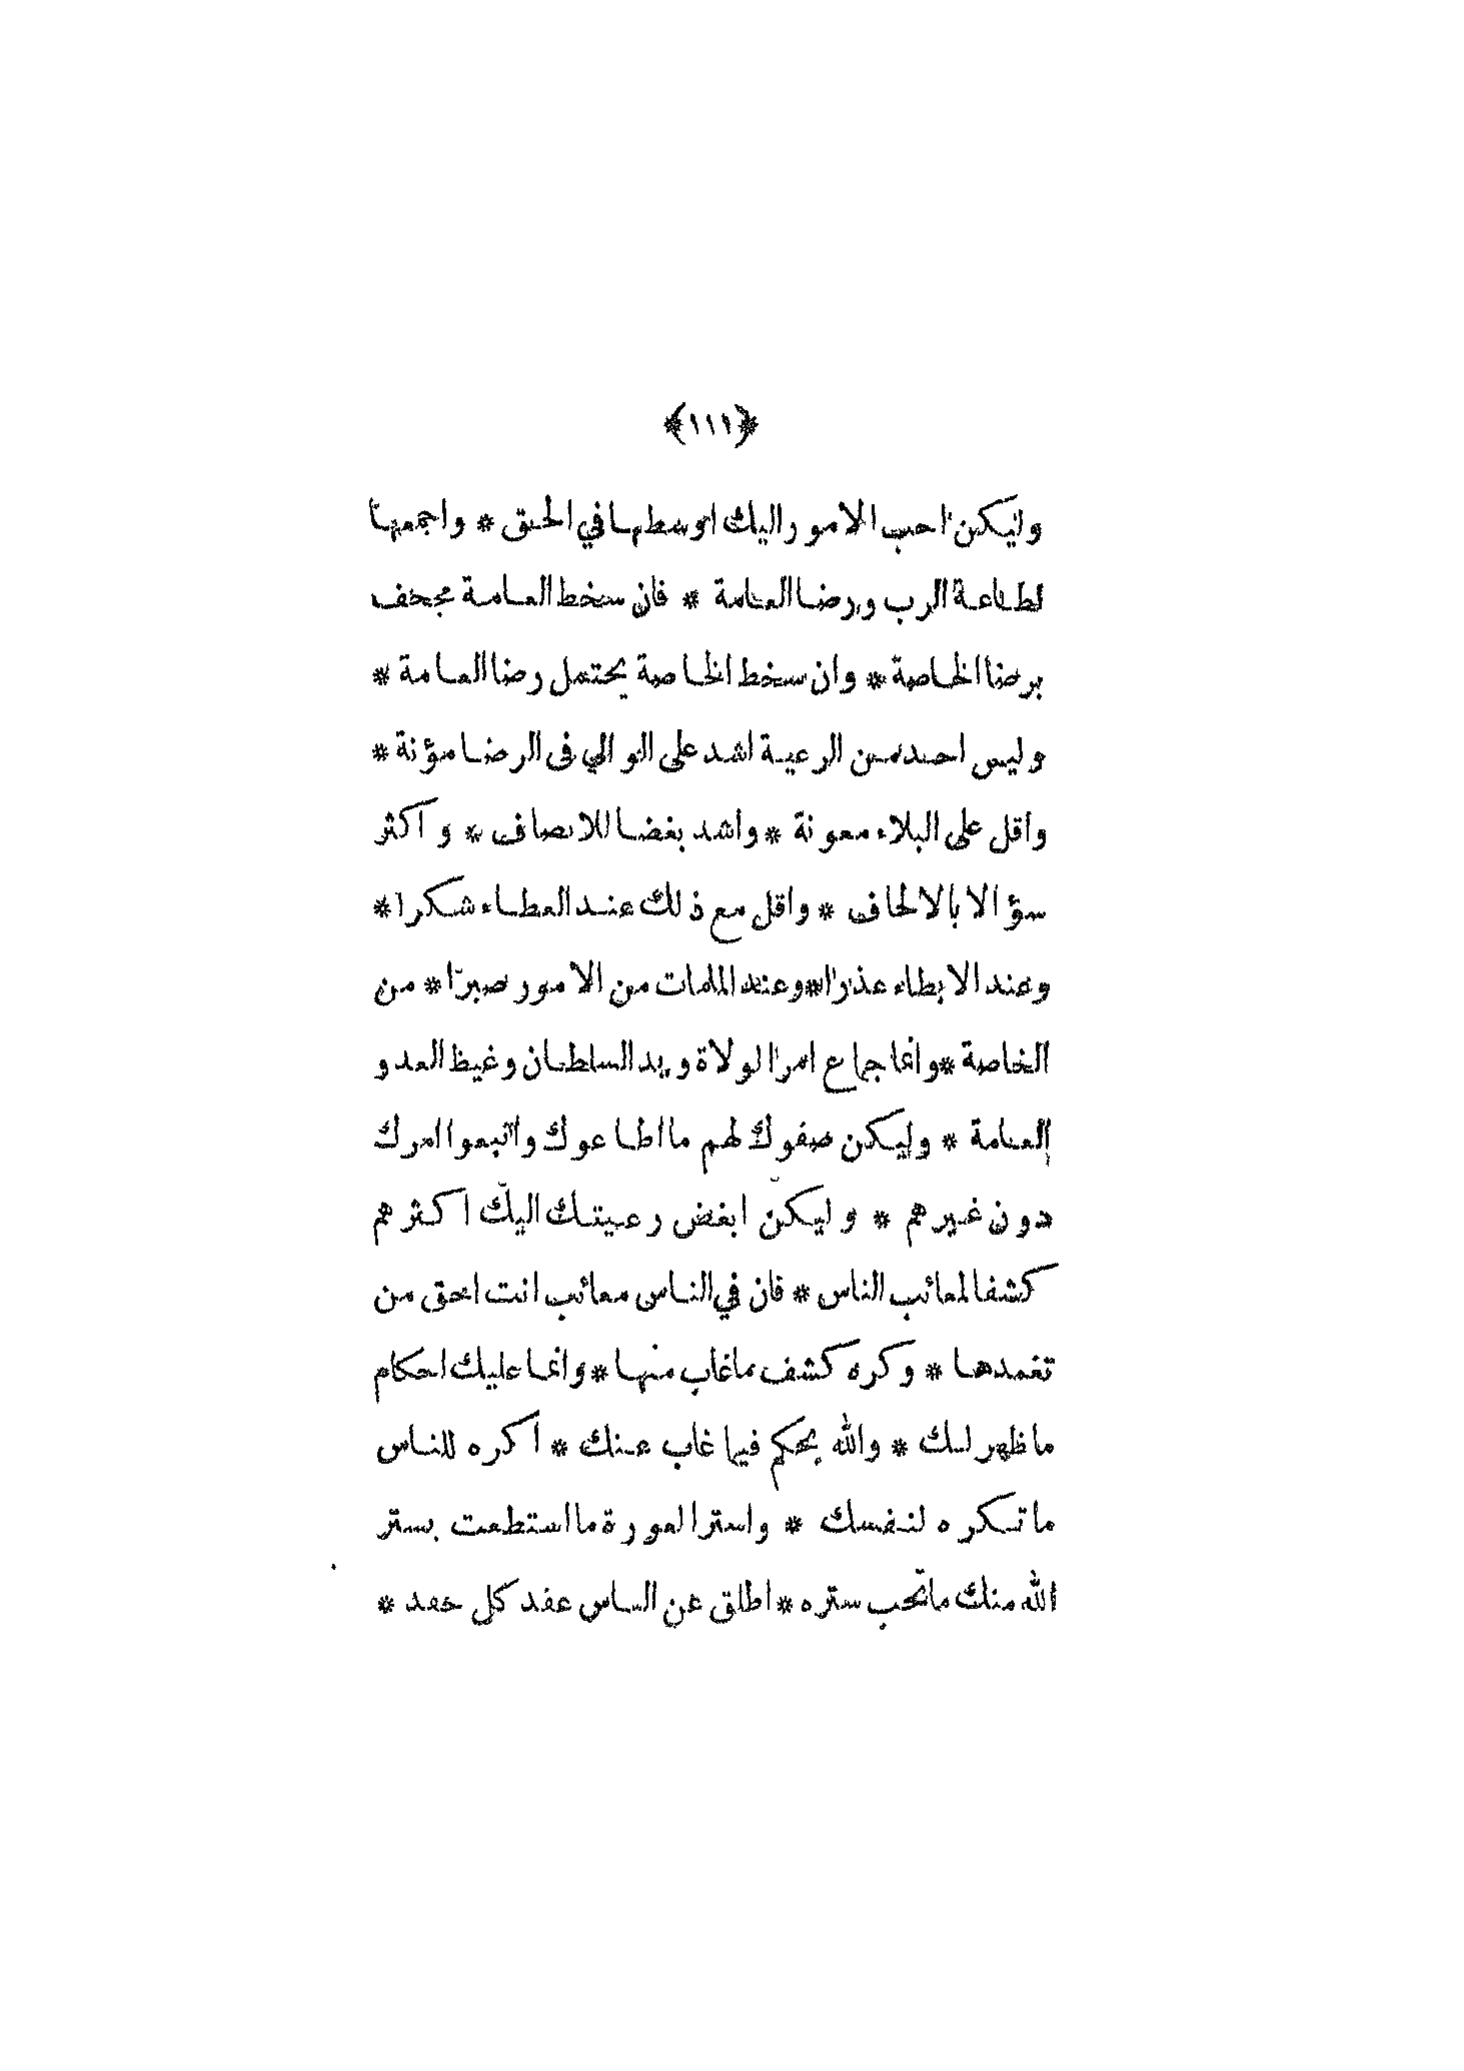 ﴿١١١﴾
وليكن احب الامور اليك اوسطها في الحق * واجمعها
لطاعة الرب ورضا العامة * فان سخط العامة مجحف
برضا الخاصة * وان سخط الخاصة يحتمل رضا العامة *
وليس احد من الرعية اشد على الوالي فى الرضا مؤنة *
واقل على البلاء معونة * واشد بغضا للانصاف * واكثر
سؤالا بالالحاف * واقل مع ذلك عند العطاء شكرا *
وعند الابطاء عذرا * وعند الملمات من الامور صبرا * من
الخاصة * وانما جماع امر الولاة ويد السلطان وغيظ العدو
العامة * وليكن صفوك لهم ما اطاعوك واتبعوا امرك
دون غيرهم * وليكن ابغض رعيتك اليك اكثرهم
كشفا لمعائب الناس * فان في الناس معائب انت احق من
تغمدها * وكره كشف ما غاب منها * وانما عليك احكام
ما ظهر لك * والله يحكم فيما غاب عنك * اكره للناس
ما تكره لنفسك * واستر العورة ما استطعت بستر
الله منك ما تحب ستره * اطلق عن الناس عقد كل حقد *